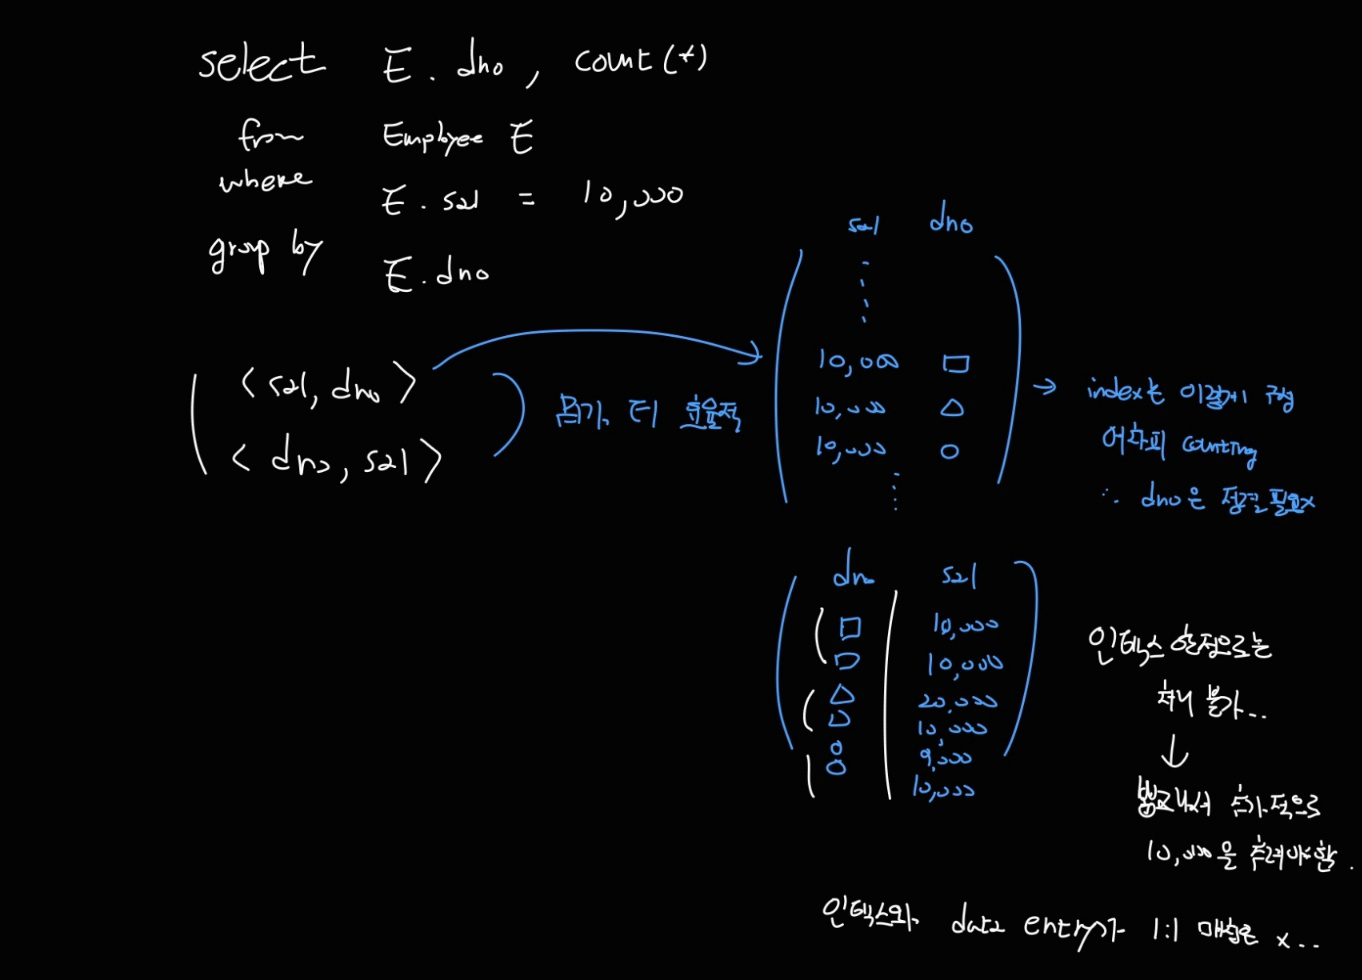 select E. dno, count(*)
from Employee E
where E. sal = 10,000
group by E. dno
< sal, dno >
< dno, sal >
뭐가 더 효율적
sal dno
10,000 □
10,000 △
10,000 ○
→ index는 이렇게 구성
어차피 counting
∴ dno은 정렬 필요x
dno sal
□ 10,000
□ 10,000
△ 20,000
△ 10,000
○ 9,000
○ 10,000
인덱스 한정으로는
처리 불가...
↓
추가적으로
10,000을 추려야함.
인덱스와 data entry가 1:1 매칭은 x...